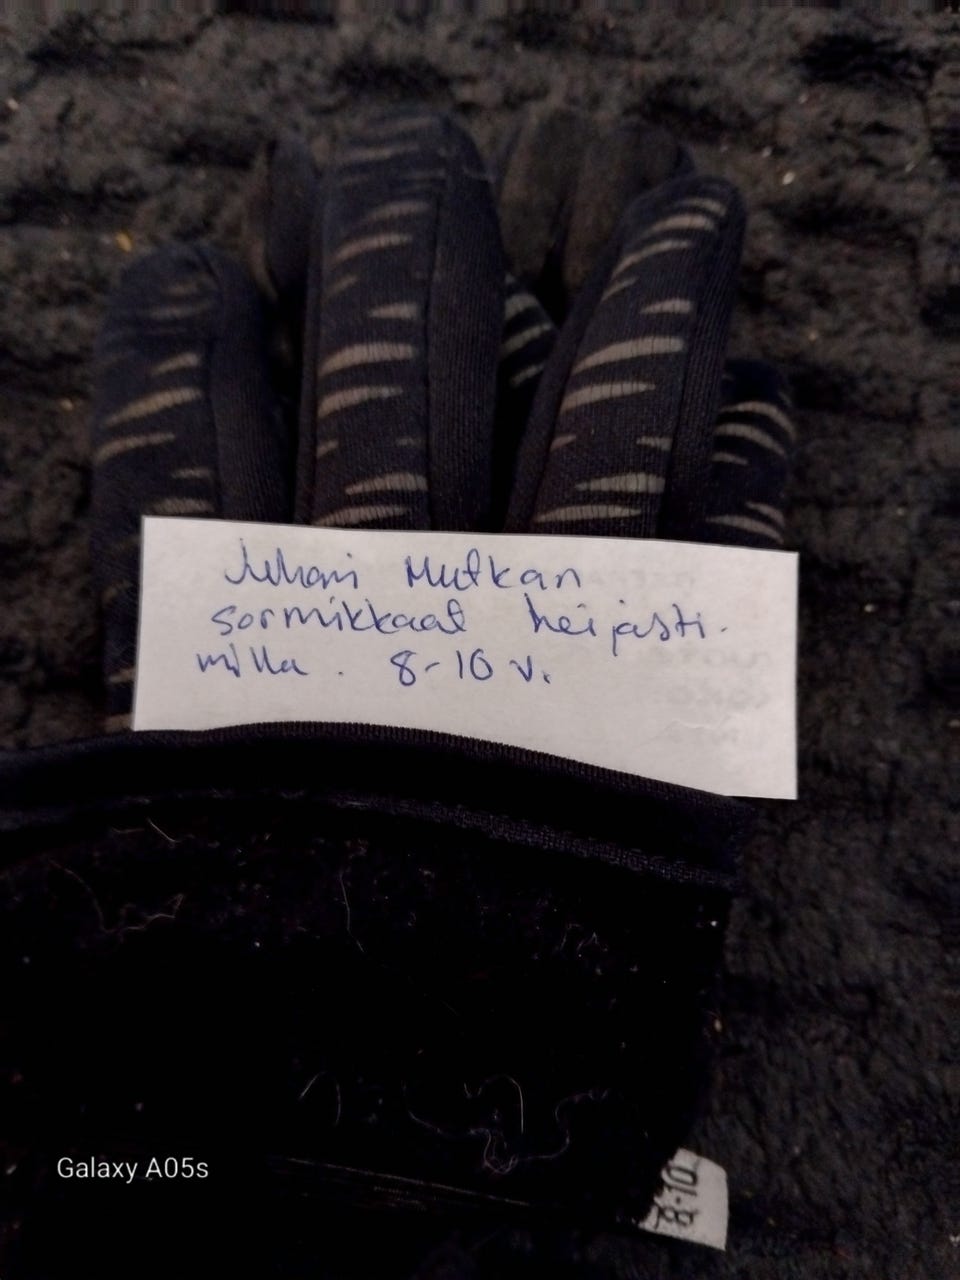 Juhani Mutkan
sormikkaat heijasti-
milla. 8-10 v.
Galaxy A05s
8-10